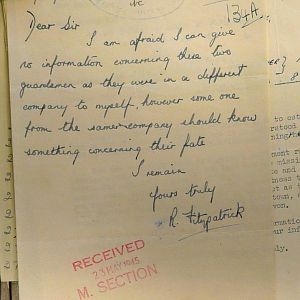 134A
Dear Sir
I am afraid I can give
no information concerning these two
guardsmen as they were in a different
company to myself, however some one
from the same company should know
something concerning their fate
I remain
Yours truly
R. Fitzpatrick
RECEIVED
23 MAY 1945
M. SECTION